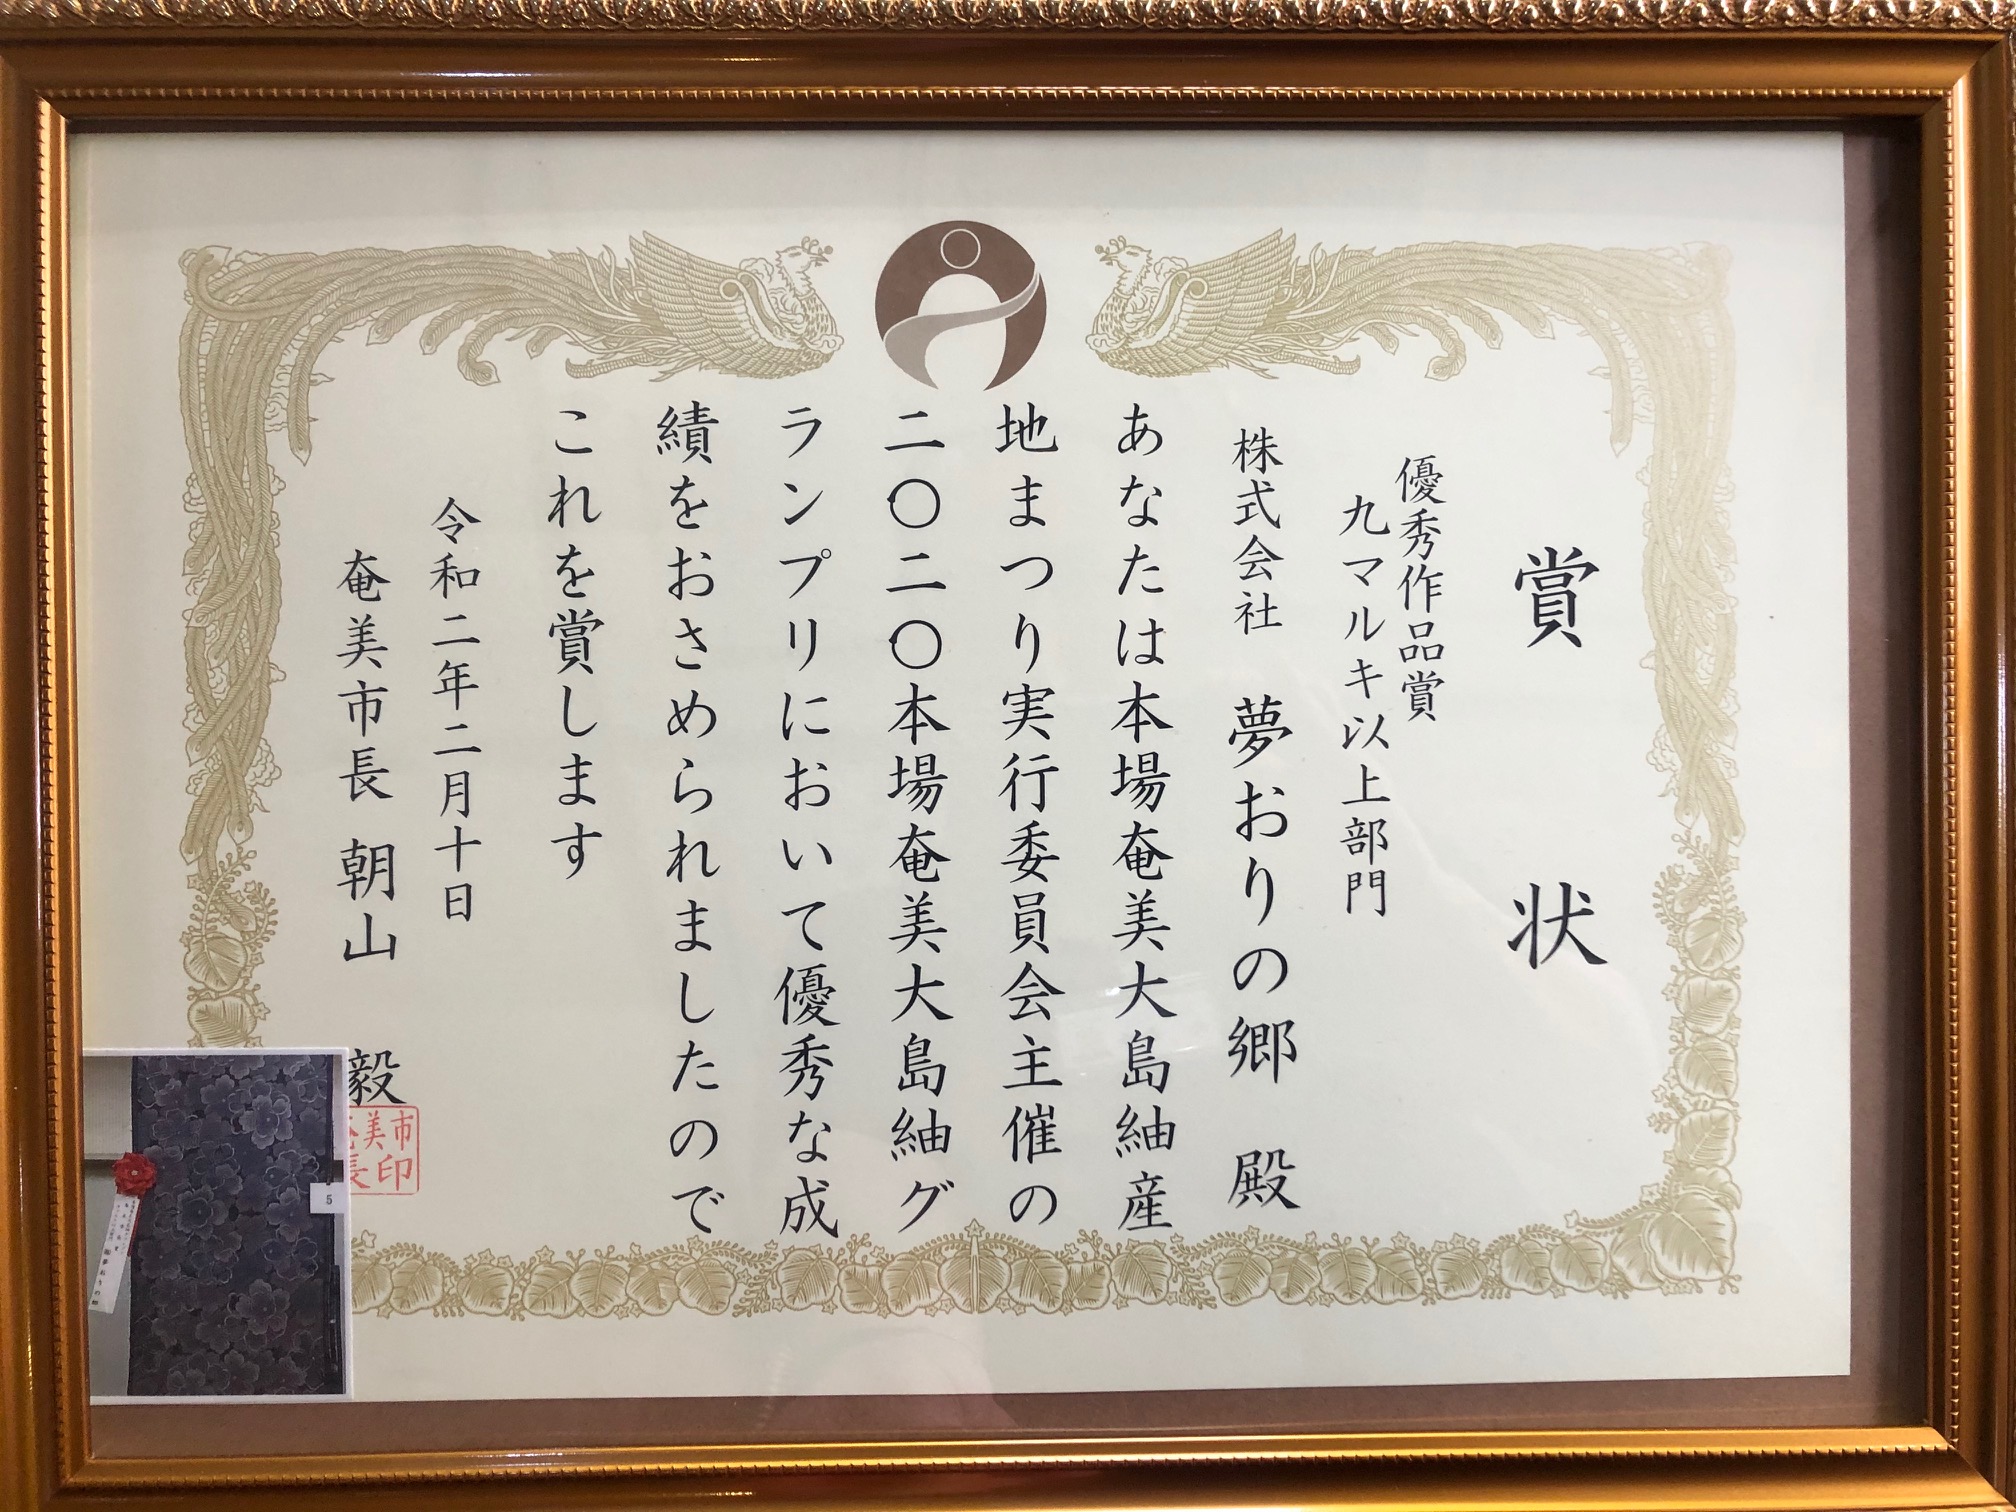 賞状
優秀作品賞
九マルキ以上部門
株式会社 夢おりの郷 殿
あなたは本場奄美大島紬産
地まつり実行委員会主催の
二〇二〇本場奄美大島紬グ
ランプリにおいて優秀な成
績をおさめられましたので
これを賞します
令和二年二月十日
奄美市長 朝山 毅
美市
長印
5